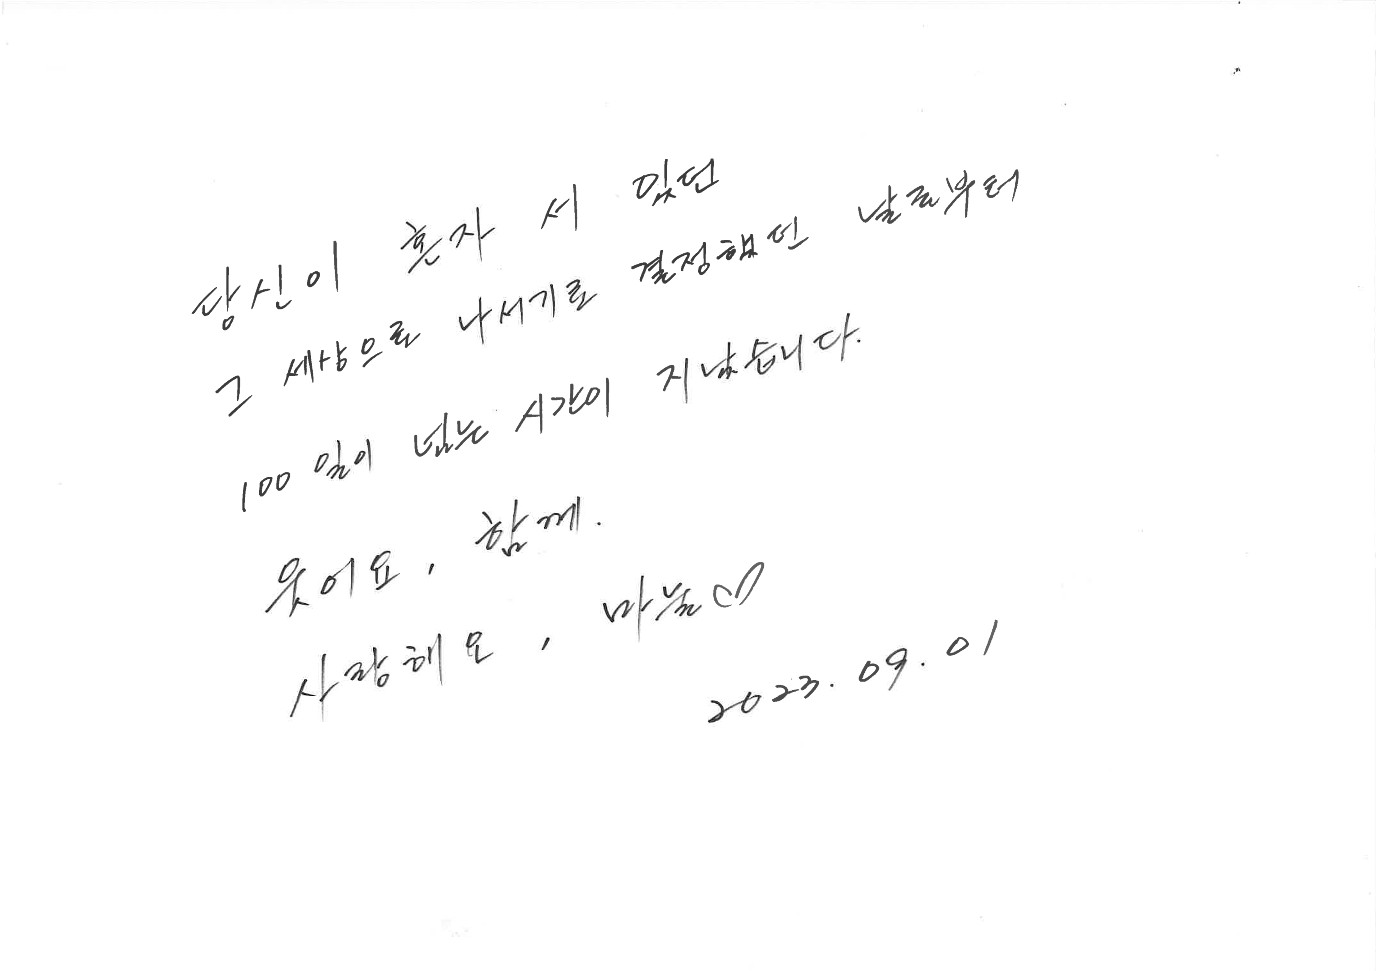 당신이 혼자 서 있던
그 세상으로 나서기로 결정했던 날로부터
100일이 넘는 시간이 지났습니다.
웃어요, 함께.
사랑해요, 마눌♡
2023.09.01